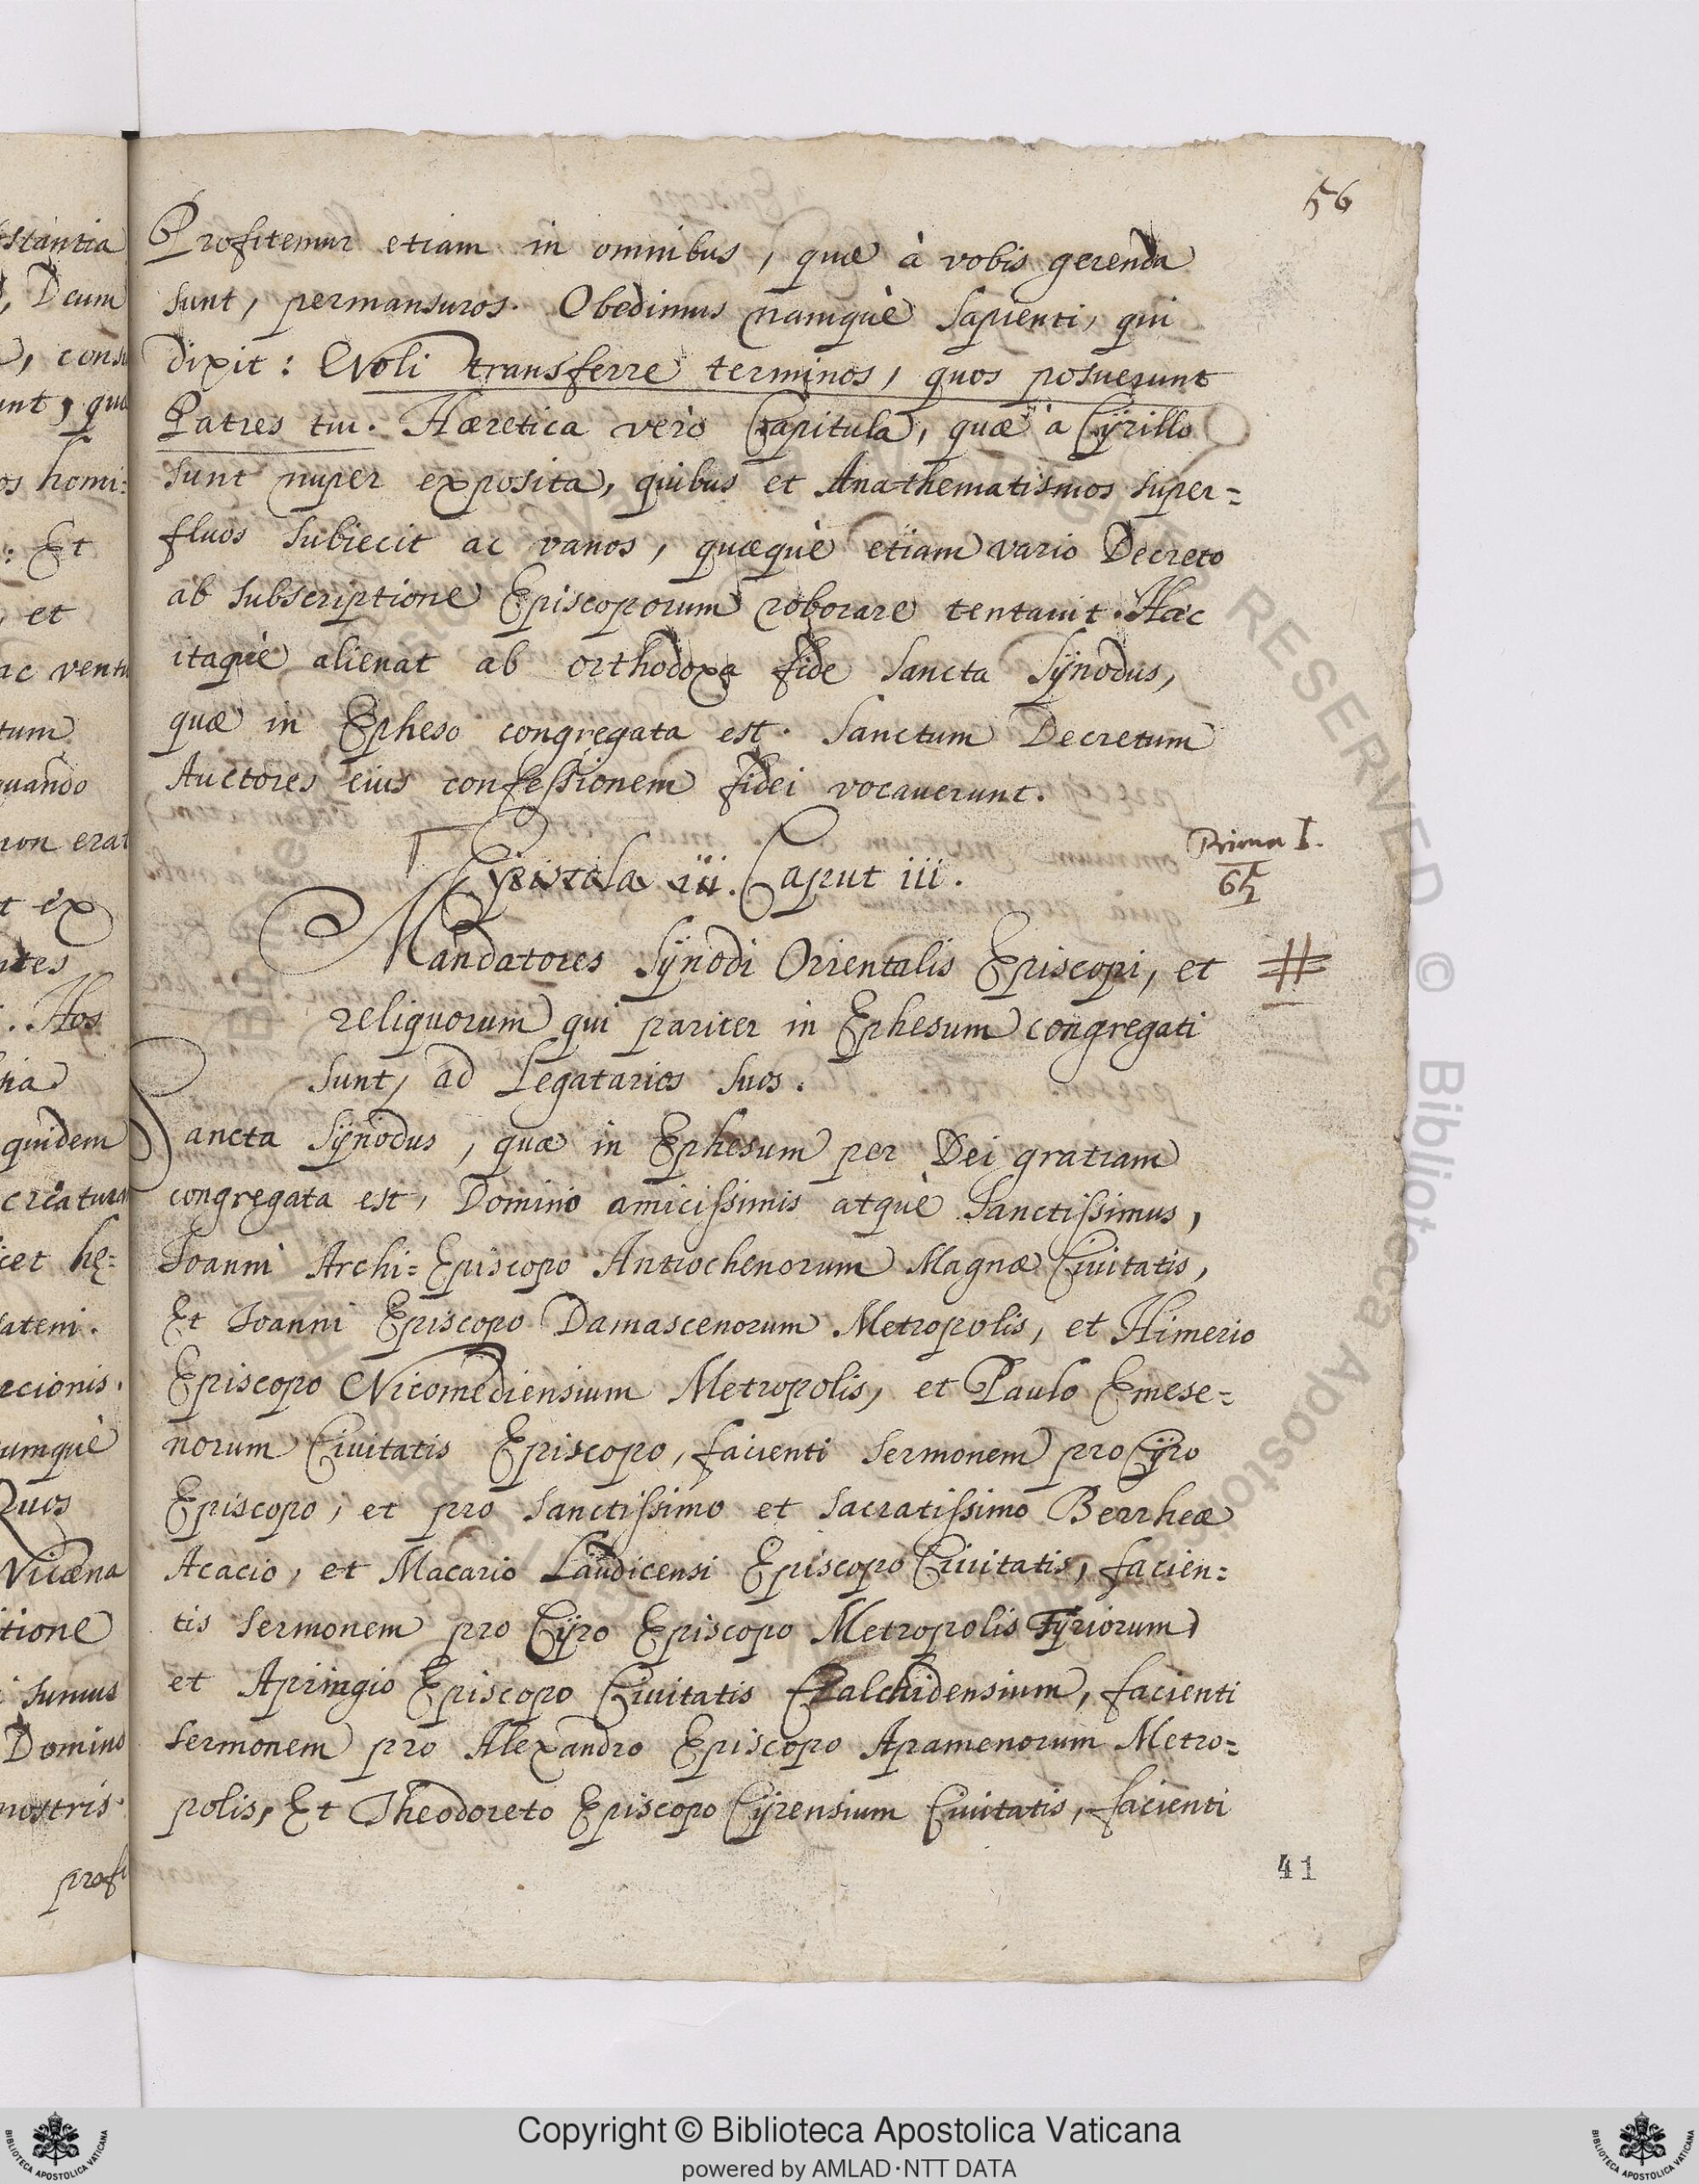 56
Profitemur etiam in omnibus, quæ à vobis gerenda
sunt, permansuros. Obedimus namquè sapienti, qui
dixit: Noli transferre terminos, quos posuerunt
Patres tui. Hæretica verò Capitula, quæ à Cÿrillo
sunt nuper exposita, quibus et Anathematismos super=
fluos subiecit ac vanos, quæquè etiam vario Decreto
ab subscriptione Episcoporum roborare tentauit. Hæc
itaquè alienat ab orthodoxa fide sancta Sÿnodus,
quæ in Epheso congregata est. Sanctum Decretum
Auctores eius confessionem fidei vocauerunt.
Epistola iii. Caput iii.
Prima I.
65
Mandatores Sÿnodi Orientalis Episcopi, et
#
reliquorum qui pariter in Ephesum congregati
sunt, ad Legatarios suos.
Sancta Sÿnodus, quæ in Ephesum per Dei gratiam
congregata est, Domino amicissimis atquè Sanctissimus,
Ioanni Archi=Episcopo Antiochenorum Magnæ Ciuitatis,
Et Ioanni Episcopo Damascenorum Metropolis, et Himerio
Episcopo Nicomediensium Metropolis, et Paulo Emese=
norum Ciuitatis Episcopo, facienti sermonem pro Cÿro
Episcopo, et pro sanctissimo et sacratissimo Berrheæ
Acacio, et Macario Laudicensi Episcopo Ciuitatis, facien=
tis sermonem pro Cÿro Episcopo Metropolis Tÿriorum
et Apringio Episcopo Ciuitatis Chalchidensium, facienti
sermonem pro Alexandro Episcopo Apamenorum Metro=
polis, Et Theodoreto Episcopo Cÿrensium Ciuitatis, facienti
41
Copyright © Biblioteca Apostolica Vaticana
powered by AMLAD·NTT DATA